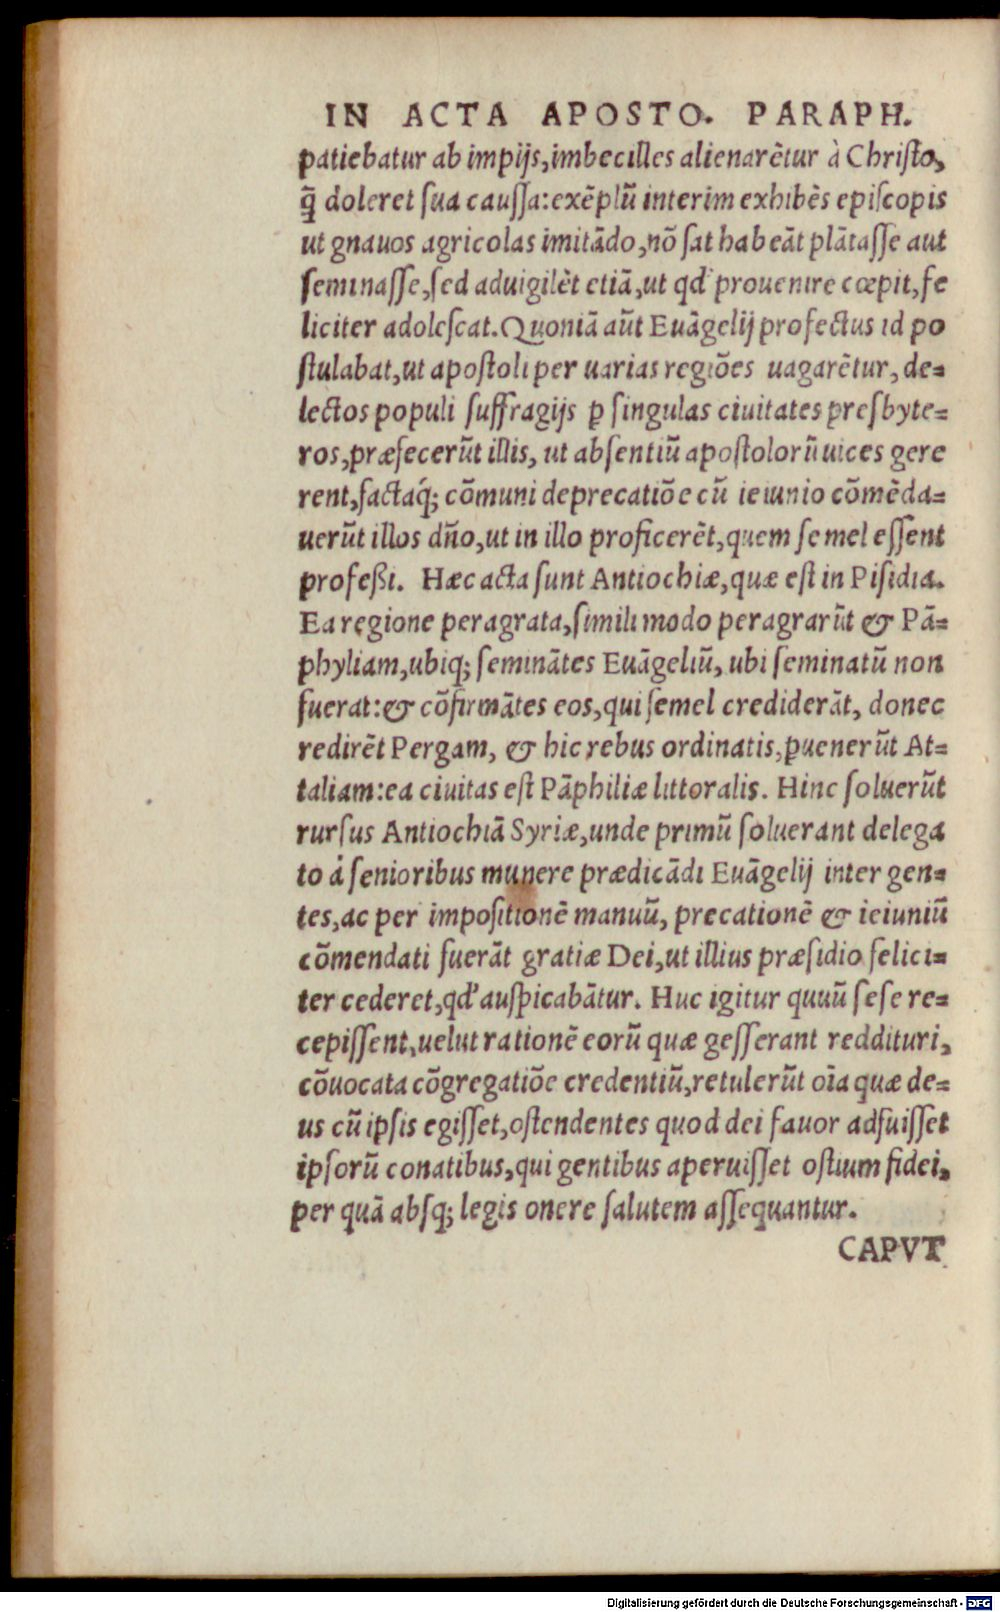 IN ACTA APOSTO. PARAPH.
patiebatur ab impijs, imbecilles alienarẽtur à Christo,
q̃ doleret sua caussa: exẽplũ interim exhibẽs episcopis
ut gnauos agricolas imitãdo, nõ sat habeãt plãtasse aut
seminasse, sed aduigilẽt etiã, ut qd' prouenire cœpit, fe
liciter adolescat. Quoniã aũt Euãgelij profectus id po
stulabat, ut apostoli per uarias regiões uagarẽtur, de=
lectos populi suffragijs p̱ singulas ciuitates presbyte=
ros, præfecerũt illis, ut absentiũ apostolorũ uices gere
rent, factaq́; cõmuni deprecatiõe cũ ieiunio cõmẽda=
uerũt illos dño, ut in illo proficerẽt, quem semel essent
professi. Hæc acta sunt Antiochiæ, quæ est in Pisidia.
Ea regione peragrata, simili modo peragrarũt & Pã=
phyliam, ubiq; seminãtes Euãgeliũ, ubi seminatũ non
fuerat: & cõfirmãtes eos, qui semel crediderãt, donec
redirẽt Pergam, & hic rebus ordinatis, p̱uenerũt At=
taliam: ea ciuitas est Pãphiliæ littoralis. Hinc soluerũt
rursus Antiochiã Syriæ, unde primũ soluerant delega
to à senioribus munere prædicãdi Euãgelij inter gen=
tes, ac per impositionẽ manuũ, precationẽ & ieiuniũ
cõmendati fuerãt gratiæ Dei, ut illius præsidio felici=
ter cederet, qd' auspicabãtur. Huc igitur quuũ sese re=
cepissent, uelut rationẽ eorũ quæ gesserant reddituri,
cõuocata cõgregatiõe credentiũ, retulerũt oĩa quæ de=
us cũ ipsis egisset, ostendentes quod dei fauor adfuisset
ipsorũ conatibus, qui gentibus aperuisset ostium fidei,
per quã absq; legis onere salutem assequantur.
CAPVT
Digitalisierung gefördert durch die Deutsche Forschungsgemeinschaft - DFG